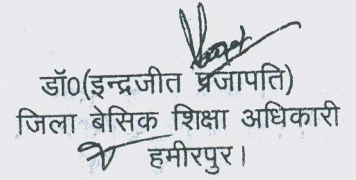 डॉ0(इन्द्रजीत प्रजापति)
जिला बेसिक शिक्षा अधिकारी
हमीरपुर।